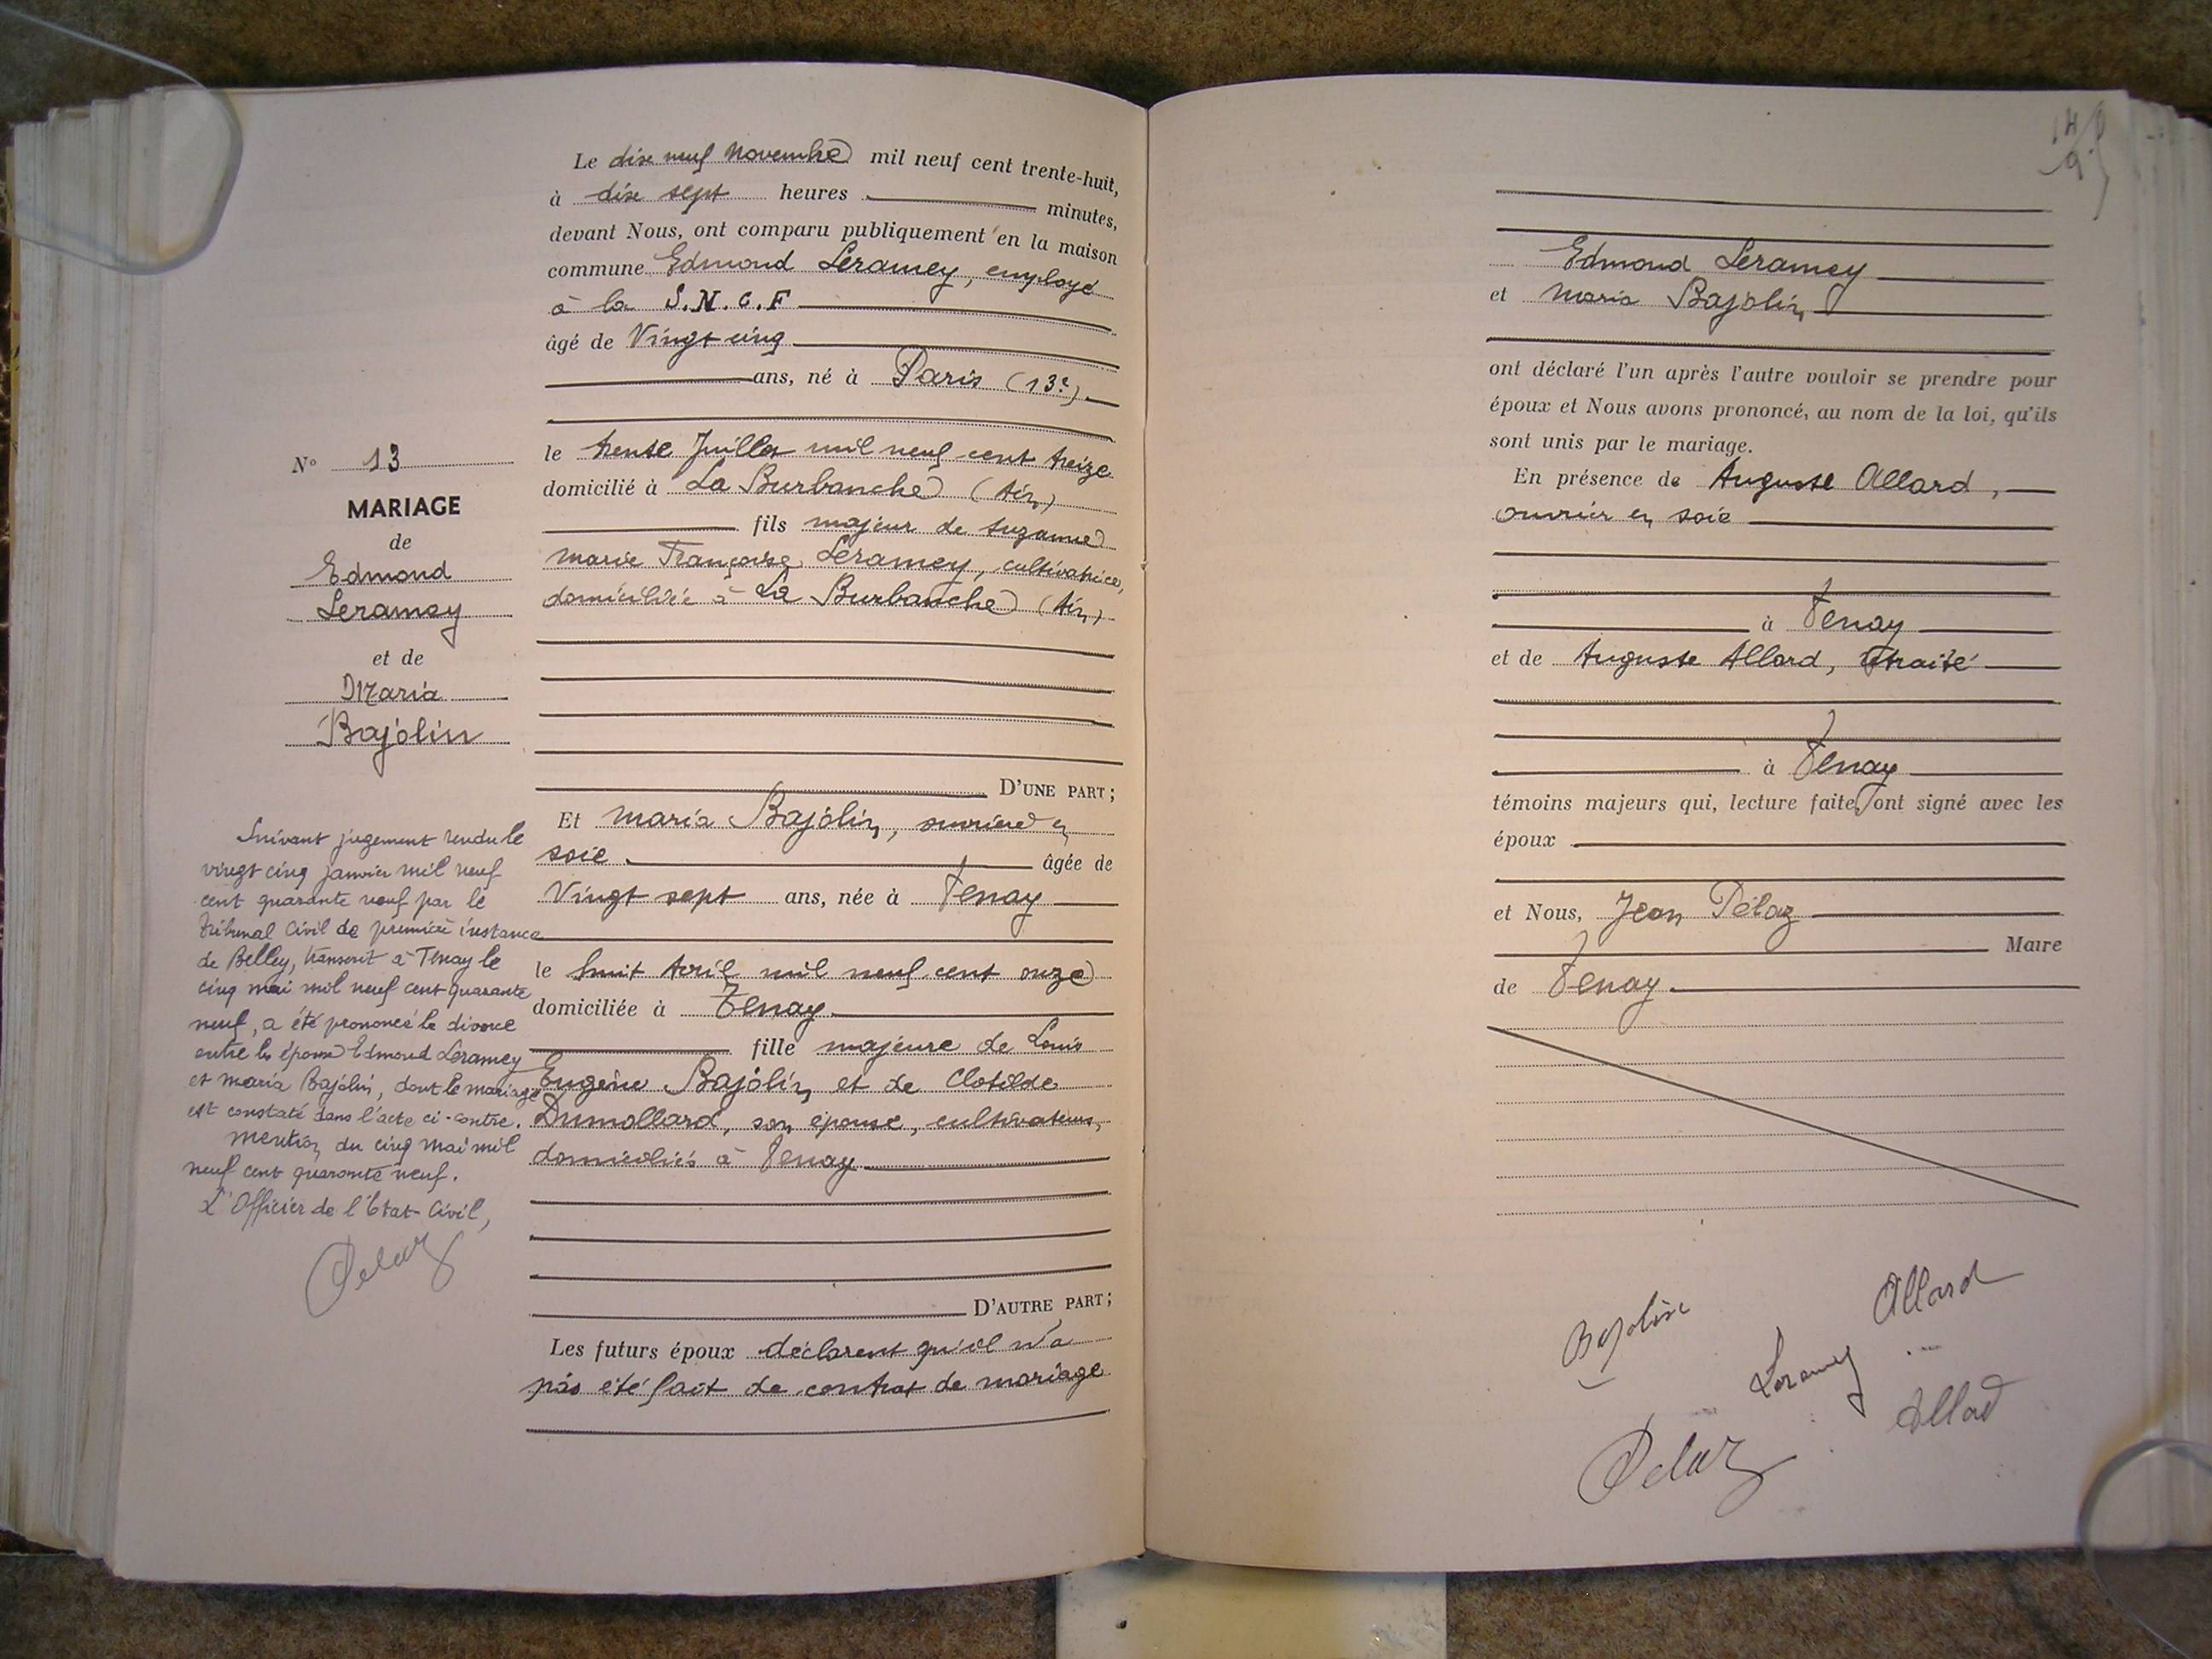 Le dix neuf Novembre mil neuf cent trente-huit,
à dix sept heures minutes,
devant Nous, ont comparu publiquement en la maison
commune Edmond Leramey, employé
à la S.N.C.F
âgé de Vingt cinq
ans, né à Paris (13e)
le trente Juillet mil neuf cent treize
domicilié à La Burbanche (Ain)
fils majeur de Suzanne
Marie Françoise Leramey, cultivatrice,
domiciliée à La Burbanche (Ain)
D'UNE PART;
Et Maria Bajolin, ouvrière en
soie. âgée de
Vingt sept ans, née à Tenay
le huit Avril mil neuf cent onze
domiciliée à Tenay
fille majeure de Louis
Eugène Bajolin et de Clotilde
Dumollard, son épouse, cultivateurs,
domiciliés à Tenay
D'AUTRE PART;
Les futurs époux déclarent qu'il n'a
pas été fait de contrat de mariage
N° 13
MARIAGE
de
Edmond
Leramey
et de
Maria
Bajolin
Suivant jugement rendu le
vingt cinq janvier mil neuf
cent quarante neuf par le
Tribunal Civil de première instance
de Belley, transcrit à Tenay le
cinq mai mil neuf cent quarante
neuf, a été prononcé le divorce
entre les époux Edmond Leramey
et Maria Bajolin, dont le mariage
est constaté dans l'acte ci-contre.
Mention du cinq Mai mil
neuf cent quarante neuf.
L'Officier de l'Etat-Civil,
Pelaz
Edmond Leramey
et Maria Bajolin
ont déclaré l'un après l'autre vouloir se prendre pour
époux et Nous avons prononcé, au nom de la loi, qu'ils
sont unis par le mariage.
En présence de Auguste Allard,
ouvrier en soie
à Tenay
et de Auguste Allard, retraité
à Tenay
témoins majeurs qui, lecture faite, ont signé avec les
époux
et Nous, Jean Pélaz
Maire
de Tenay.
Bajolin
Allard
Leramey
Allard
Pelaz